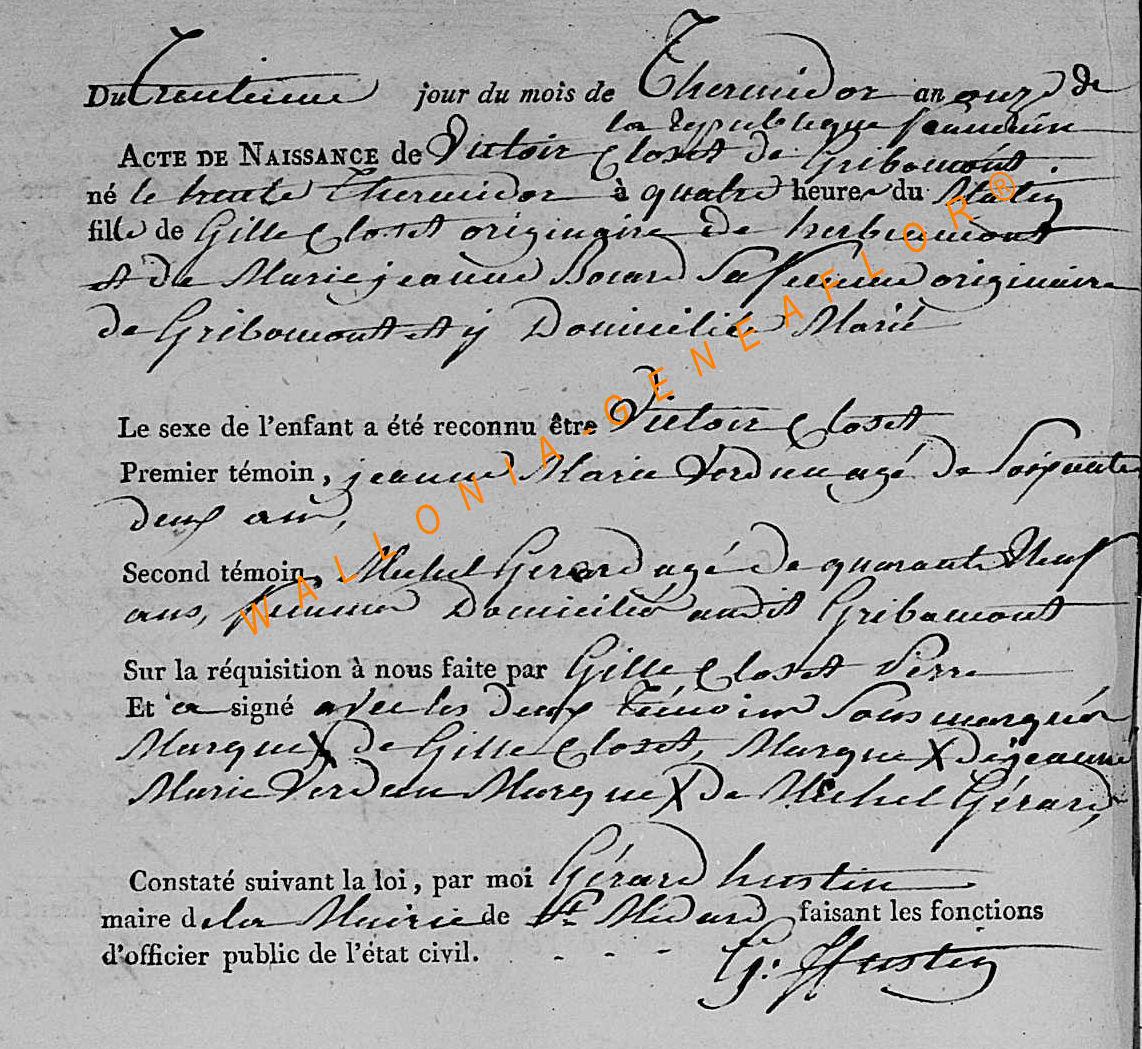 Du Trentieme jour du mois de Thermidor an onze de
la republique francaise
ACTE DE NAISSANCE de Victoir Closet de Gribomont
né le trente Thermidor à quatre heures du Matin
fille de Gille Closet originaire de herbeumont
et de Marie jeanne Sa femme originaire
de Gribomont et y Domicilié Marié
Le sexe de l'enfant a été reconnu être Victoir Closet
Premier témoin, jeanne Marie Verdun agé de Soixante
deux ans,
Second témoin, Michel Gerard agé de quarante Neuf
ans, Domicilié audit Gribomont
Sur la réquisition à nous faite par Gille Closet Perre
Et a signé avec les deux Témoins Sous marqués
Marque X de Gille Closet, Marque X de jeanne
Marie Verdun Marque X de Michel Gérard,
Constaté suivant la loi, par moi Gérard hustin
maire de la Mairie de St Médard, faisant les fonctions
d'officier public de l'état civil. - - -
G: Hustin
WALLONIA-GENEAFLOR®